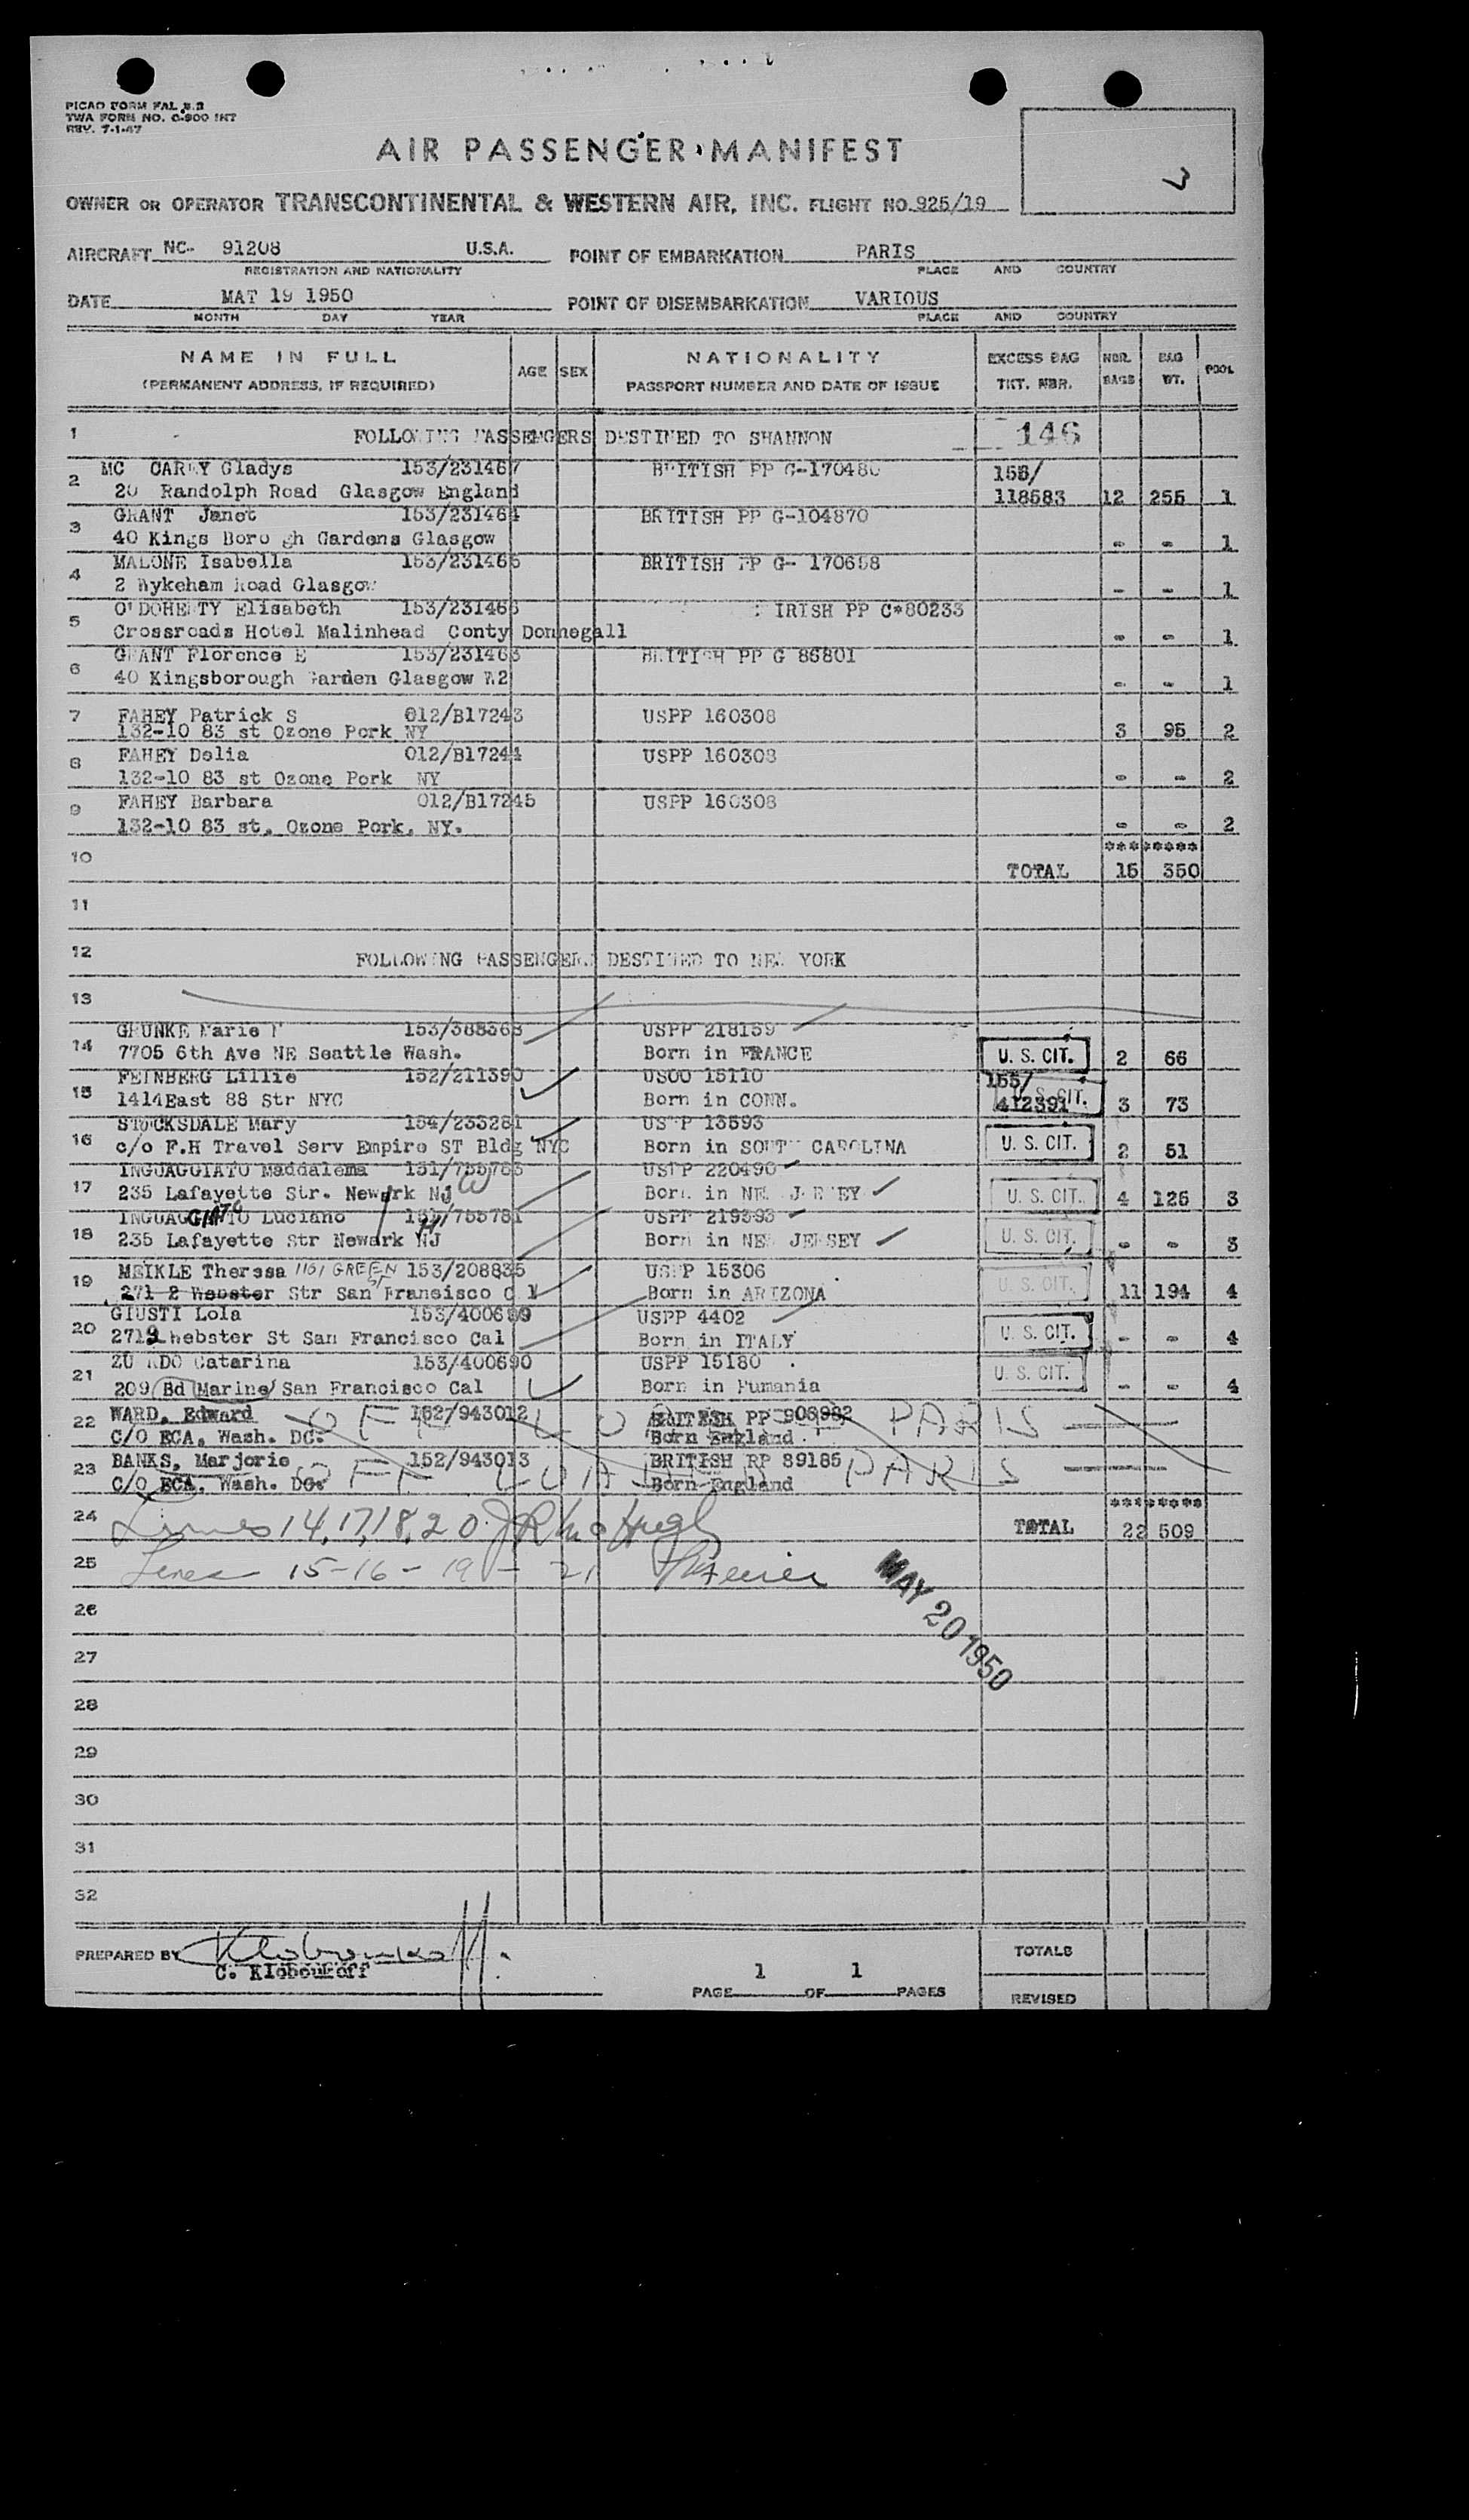 PICAO FORM FAL
TWA FORM NO. 0-800 INT
REV. 7-1-47
AIR PASSENGER MANIFEST
OWNER OR OPERATOR TRANSCONTINENTAL & WESTERN AIR, INC. FLIGHT NO. 925/19
AIRCRAFT NC- 91208 U.S.A. POINT OF EMBARKATION PARIS
REGISTRATION AND NATIONALITY PLACE AND COUNTRY
DATE MAT 19 1950 POINT OF DISEMBARKATION VARIOUS
MONTH DAY YEAR PLACE AND COUNTRY
NAME IN FULL AGE SEX NATIONALITY EXCESS BAG NBR. BAG POOL
(PERMANENT ADDRESS, IF REQUIRED) PASSPORT NUMBER AND DATE OF ISSUE TKT. NBR. BAGS WT.
1 FOLLOWING PASSENGERS DESTINED TO SHANNON 146
2 MC CAREY Gladys 153/231467 BRITISH PP G-170480 155/
20 Randolph Road Glasgow England 118583 12 255 1
3 GRANT Janet 153/231464 BRITISH PP G-104870
40 Kings Boro gh Gardens Glasgow - - 1
4 MALONE Isabella 153/231465 BRITISH PP G- 170658
2 Wykeham Road Glasgow - - 1
5 O'DOHERTY Elisabeth 153/231466 IRISH PP C*80233
Crossroads Hotel Malinhead Conty Donnegall - - 1
6 GRANT Florence E 153/231463 BRITISH PP G 86801
40 Kingsborough Garden Glasgow W2 - - 1
7 FAHEY Patrick S 012/B17243 USPP 160308
132-10 83 st Ozone Pork NY 3 95 2
8 FAHEY Delia 012/B17244 USPP 160308
132-10 83 st Ozone Pork NY - - 2
9 FAHEY Barbara 012/B17245 USPP 160308
132-10 83 st, Ozone Pork, NY. - - 2
*********
10 TOTAL 15 350
11
12 FOLLOWING PASSENGERS DESTINED TO NEW YORK
13
14 GRUNKE Marie M 153/388368 USPP 218159
7705 6th Ave NE Seattle Wash. Born in FRANCE U. S. CIT. 2 66
15 FEINBERG Lillie 152/211390 USOO 15110 155/
1414East 88 Str NYC Born in CONN. 412391 U. S. CIT. 3 73
16 STOCKSDALE Mary 154/233281 USPP 13593
c/o F.H Travel Serv Empire ST Bldg NYC Born in SOUTH CAROLINA U. S. CIT. 2 51
17 INGUAGGIATO Maddalema 151/755783 USPP 220490
235 Lafayette Str. Newark NJ Born in NEW JERSEY U. S. CIT. 4 125 3
18 INGUAGGIATO Luciano 151/755781 USPP 219393
235 Lafayette Str Newark NJ Born in NEW JERSEY U. S. CIT. - - 3
19 MEIKLE Theresa 1161 GREEN ST 153/208835 USPP 15306
271 2 Webster Str San Fransisco Born in ARIZONA U. S. CIT. 11 194 4
20 GIUSTI Lola 153/400689 USPP 4402
2719 Webster St San Francisco Cal Born in ITALY U. S. CIT. - - 4
21 ZU RDO Catarina 153/400690 USPP 15180
209 Bd Marine San Francisco Cal Born in Rumania U. S. CIT. - - 4
22 WARD, Edward 152/943012 BRITISH PP 906982 OFF LOADED PARIS
C/O ECA, Wash. DC. Born England
23 BANKS, Marjorie 152/943013 BRITISH PP 89185 OFF LOADED PARIS
C/O ECA, Wash. DC. Born England
********
24 Lines 14,17,18,20 TOTAL 22 509
25 Lines 15-16-19-21
MAY 20 1950
26
27
28
29
30
31
32
PREPARED BY
C. Kloboukoff
TOTALS
PAGE 1 OF 1 PAGES
REVISED